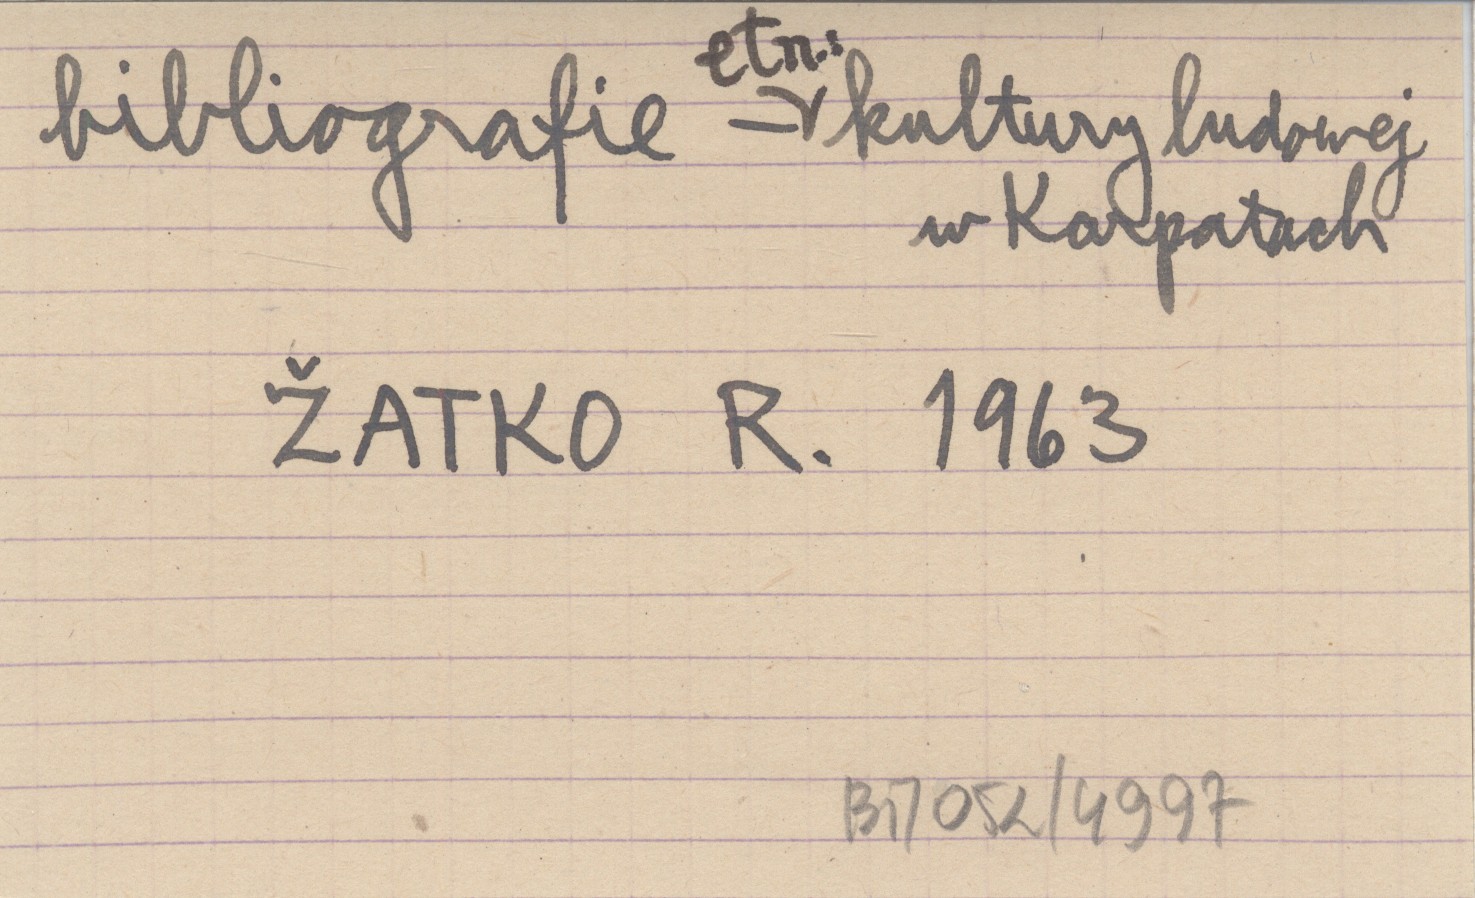 bibliografie etn.: kultury ludowej
w Karpatach
ŽATKO R. 1963
/4997